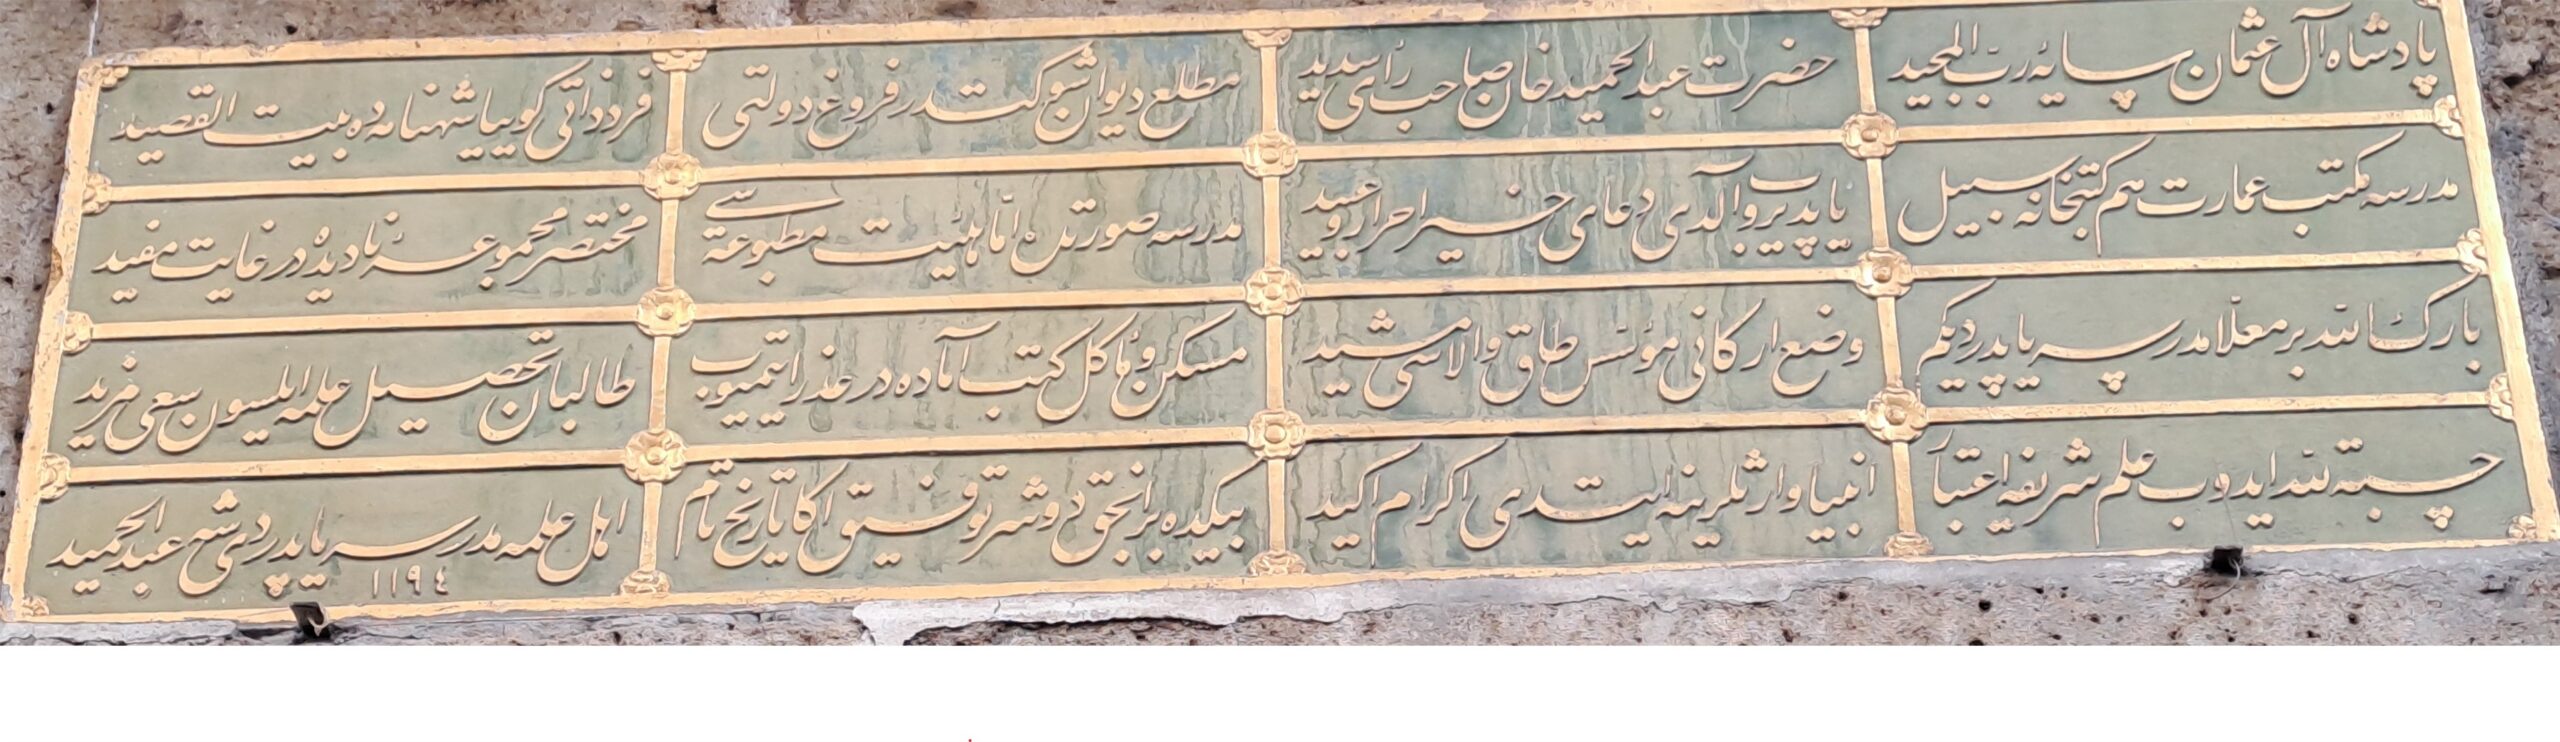 پادشاه آل عثمان سایهٔ رب المجید
حضرت عبدالحمید خان صاحب رأی سدید
مطلع دیوان شوکتدر فروغ دولتی
فرد ذاتی کوییا شهنامه ده بیت القصید
مدرسه مکتب عمارت هم کتبخانه سبیل
یاپدیروب الدی دعای خیر احرار و عبید
مدرسه صورتده اما هیئت مطبوعه سی
مختصر مجموعهٔ نادیده در غایت مفید
بارک الله بر معلا مدرسه یاپدردیکم
وضع ارکانی مؤسس طاق والاسی مشید
مسکن و مأکل کتب آماده در عذر ایتمیوب
طالبان تحصیل علمه ایلسون سعی مزید
حسبة لله ایدوب علم شریفه اعتبار
انبیا وارثلرینه ایتدی اکرام اکید
بیکده بر انجق دوشر توفیق اکا تاریخ تام
اهل علمه مدرسه یاپدردی شه عبدالحمید
١١٩٤